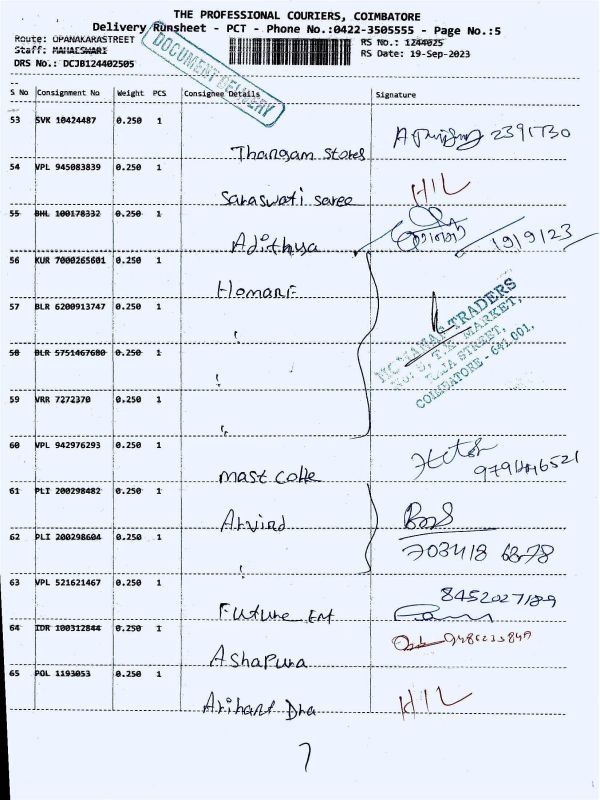 THE PROFESSIONAL COURIERS, COIMBATORE
Delivery Runsheet - PCT - Phone No.:0422-3505555 - Page No.:5
Route: OPANAKARASTREET
RS No.: 1244025
Staff: MAHAESWARI
RS Date: 19-Sep-2023
DRS No.: DCJB124402505
DOCUMENT DELIVERY
S No Consignment No Weight PCS Consignee Details Signature
53 SVK 10424487 0.250 1
Thangam Stores 2391730
54 VPL 945083839 0.250 1
Saraswati Saree HIL
55 BHL 100178332 0.250 1
Adithya 19/9/23
56 KUR 7000265601 0.250 1
57 BLR 6200913747 0.250 1
TRADERS
T.K. MARKET,
RAJA STREET,
COIMBATORE - 641 001.
58 BLR 5751467680 0.250 1
59 VRR 7272370 0.250 1
60 VPL 942976293 0.250 1
mast
61 PLI 200298482 0.250 1
Arvind
62 PLI 200298604 0.250 1
703418 6878
63 VPL 521621467 0.250 1
Future Ent
64 IDR 100312844 0.250 1
Ashapura
65 POL 1193053 0.250 1
Arihant Dha HIL
7